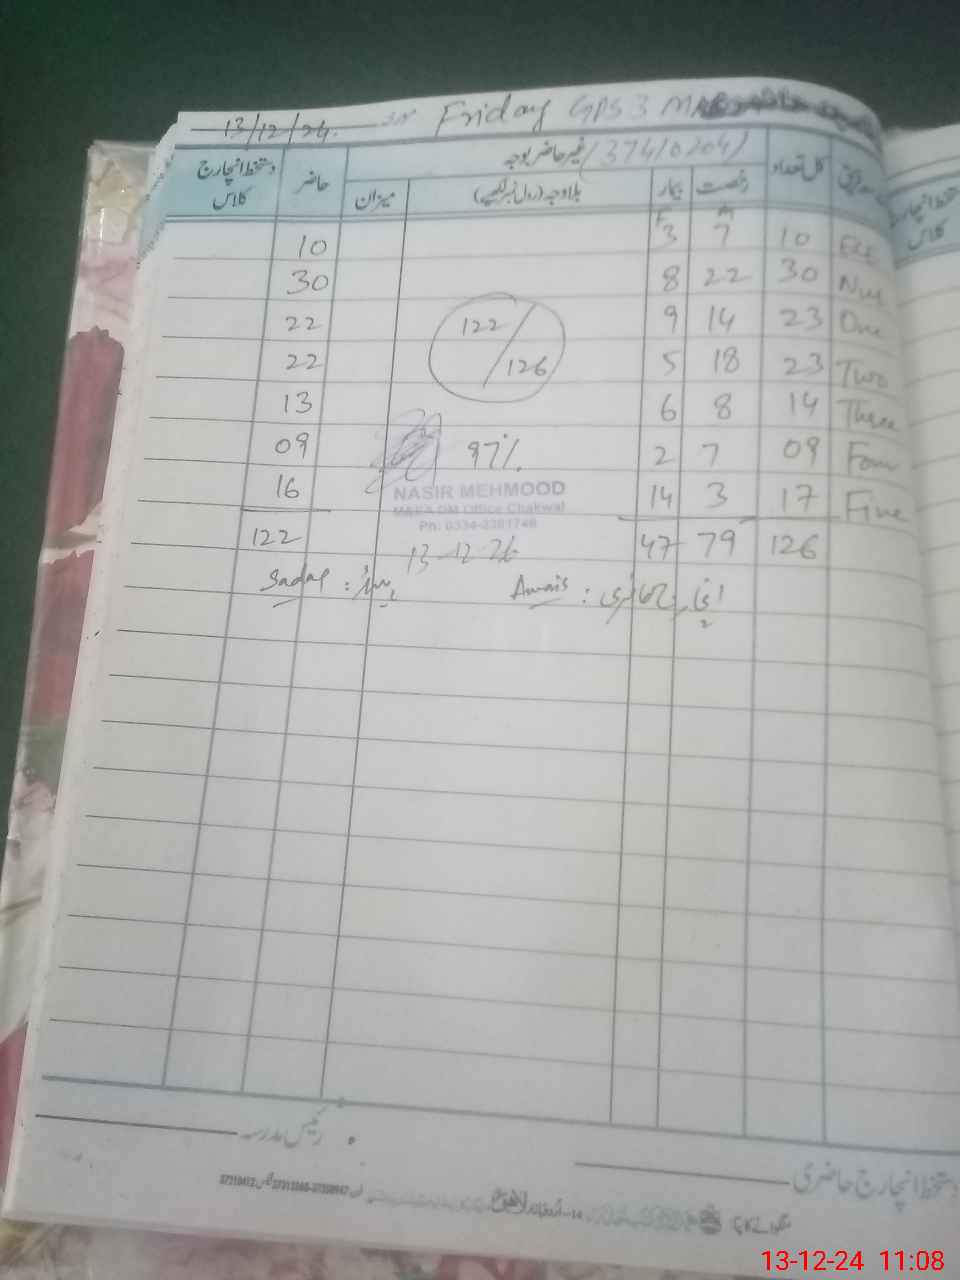 13/12/24. Friday GPS 3
دستخط انچارج کلاس حاضر غیر حاضر بوجہ (37410204) کل تعداد
میزان بلاوجہ (رول نمبر لکھیے) بیمار رخصت
F M
10 3 7 10 ECE
30 8 22 30 Nur
22 9 14 23 One
122/126
22 5 18 23 Two
13 6 8 14 Three
09 97% 2 7 09 Four
16 14 3 17 Five
NASIR MEHMOOD
M&EA DM Office Chakwal
Ph: 0334-
122 47 79 126
13-12-26
Sadaf : Awais :
رئیس مدرسہ
دستخط انچارج حاضری
13-12-24 11:08